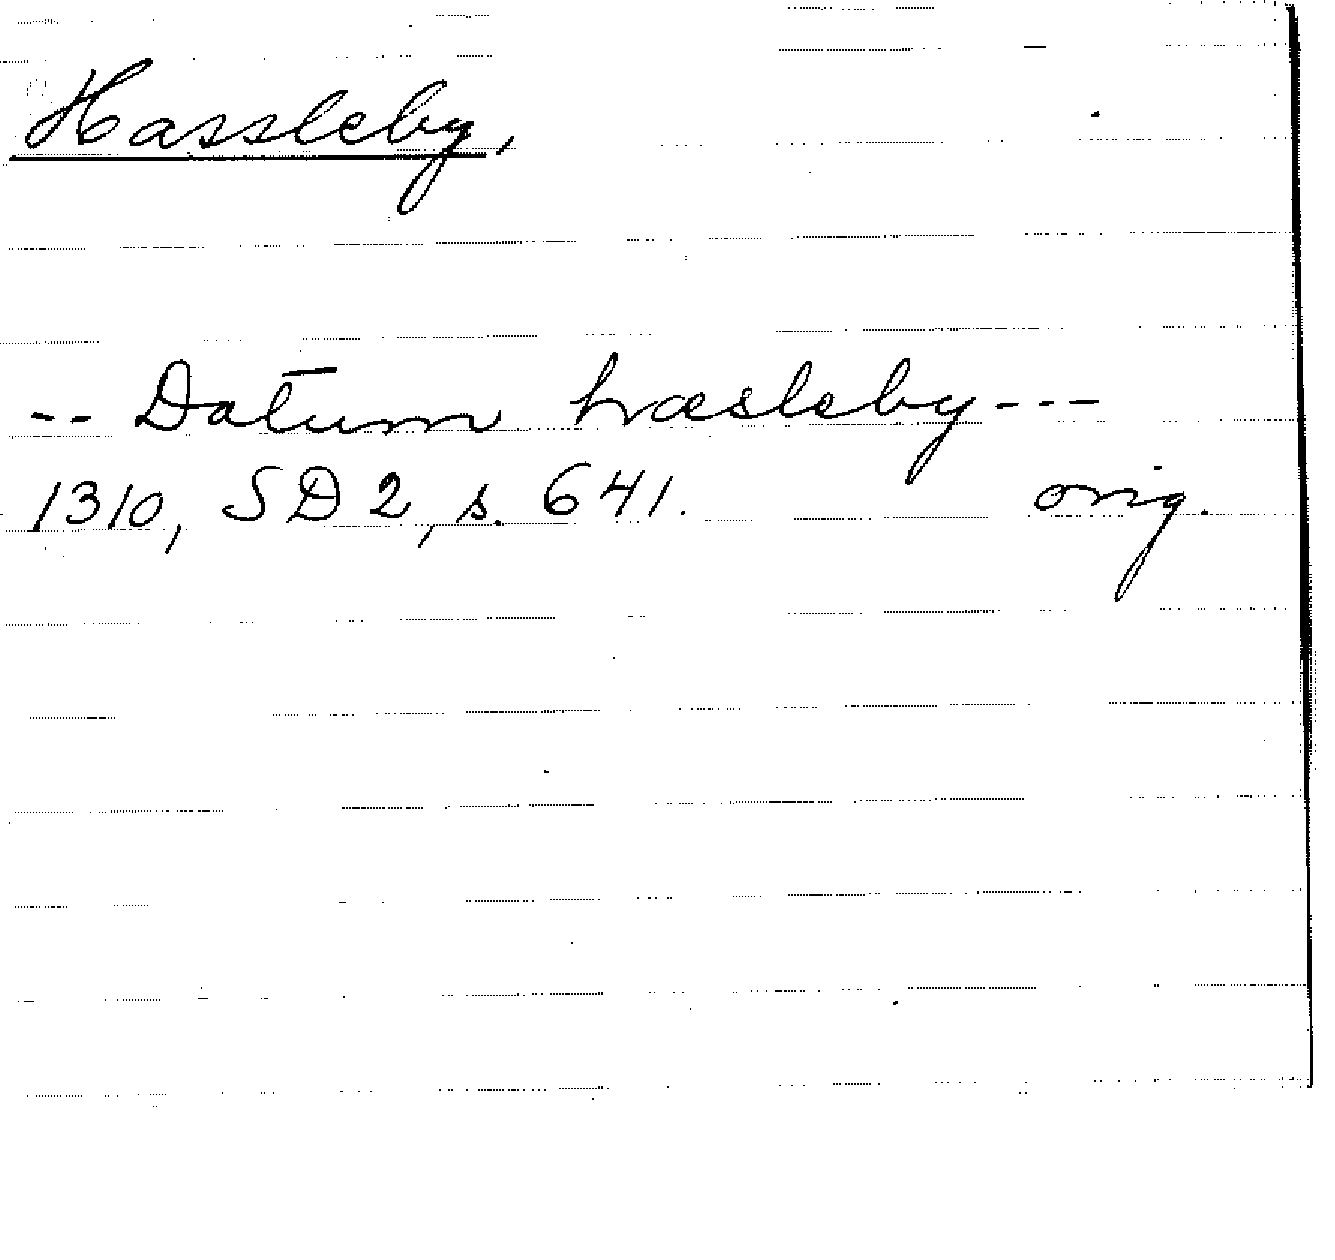 Hassleby,
-- Datum hræsleby ---
1310, SD 2, s. 641. orig.